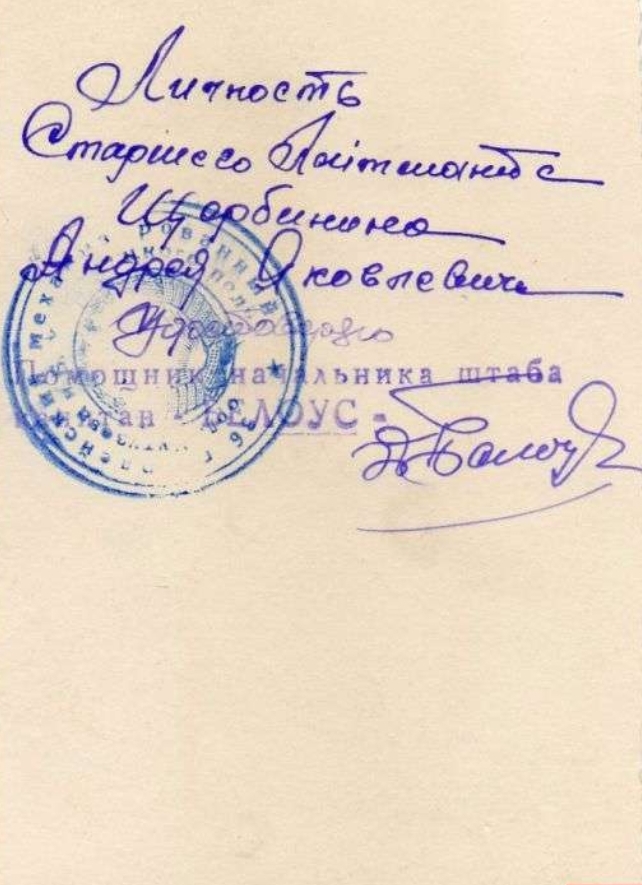 Личность
Старшего Лейтенанта
Щербинина
Андрея Яковлевича
Удостоверяю
Помощник начальника штаба
капитан - БЕЛОУС -